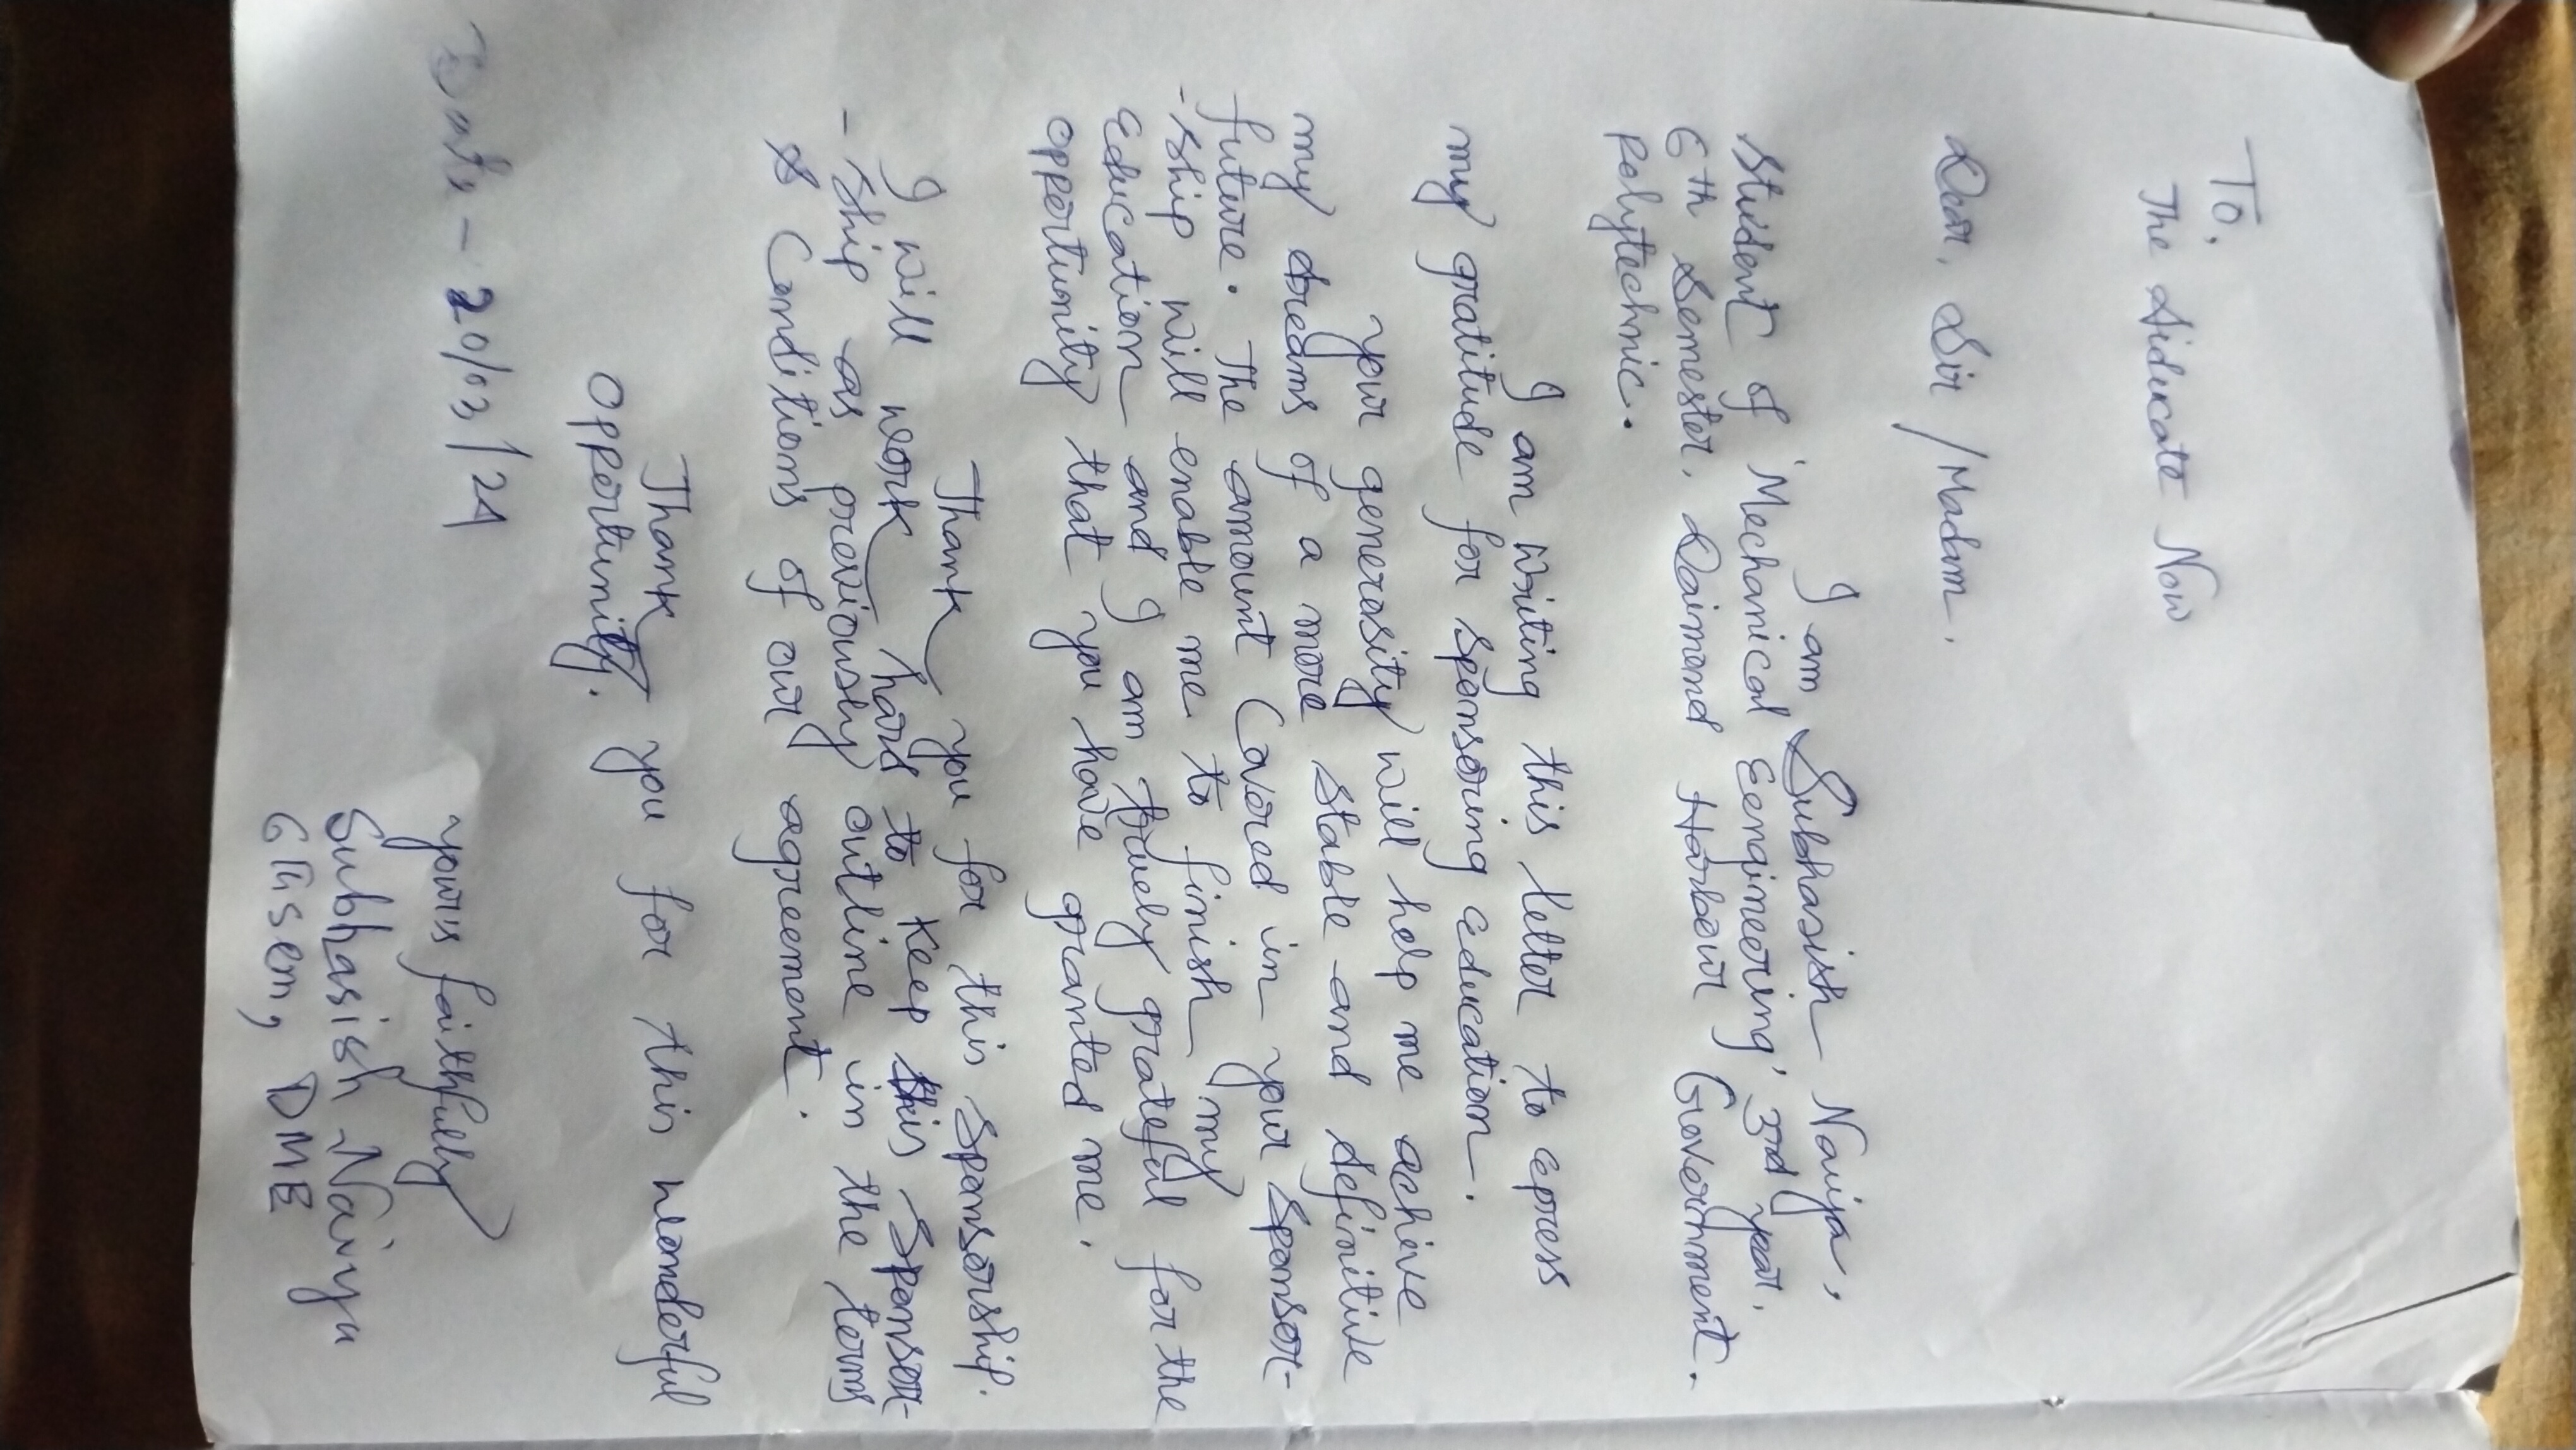 To,
The Aiducate Now
Dear, Sir /Madam,
I am Subhasish Naiya,
Student of 'Mechanical Eengineering' 3rd year,
6th Semester, Daimond Harbour Government.
Polytechnic.
I am writing this letter to epress
my gratitude for sponsoring education.
your generosity will help me achive
my dreams of a more stable and definitive
future. The amount Covered in your sponsor-
-ship will enable me to finish my
Education and I am truely grateful for the
opportunity that you have granted me.
Thank you for this sponsorship.
I will work hard to keep this sponsor-
-ship as previously outline in the terms
& Conditions of our agreement.
Thank you for this wonderful
opportunity.
yours faithfully
Subhasish Naiya
6th sem, DME
Date - 20/03/24